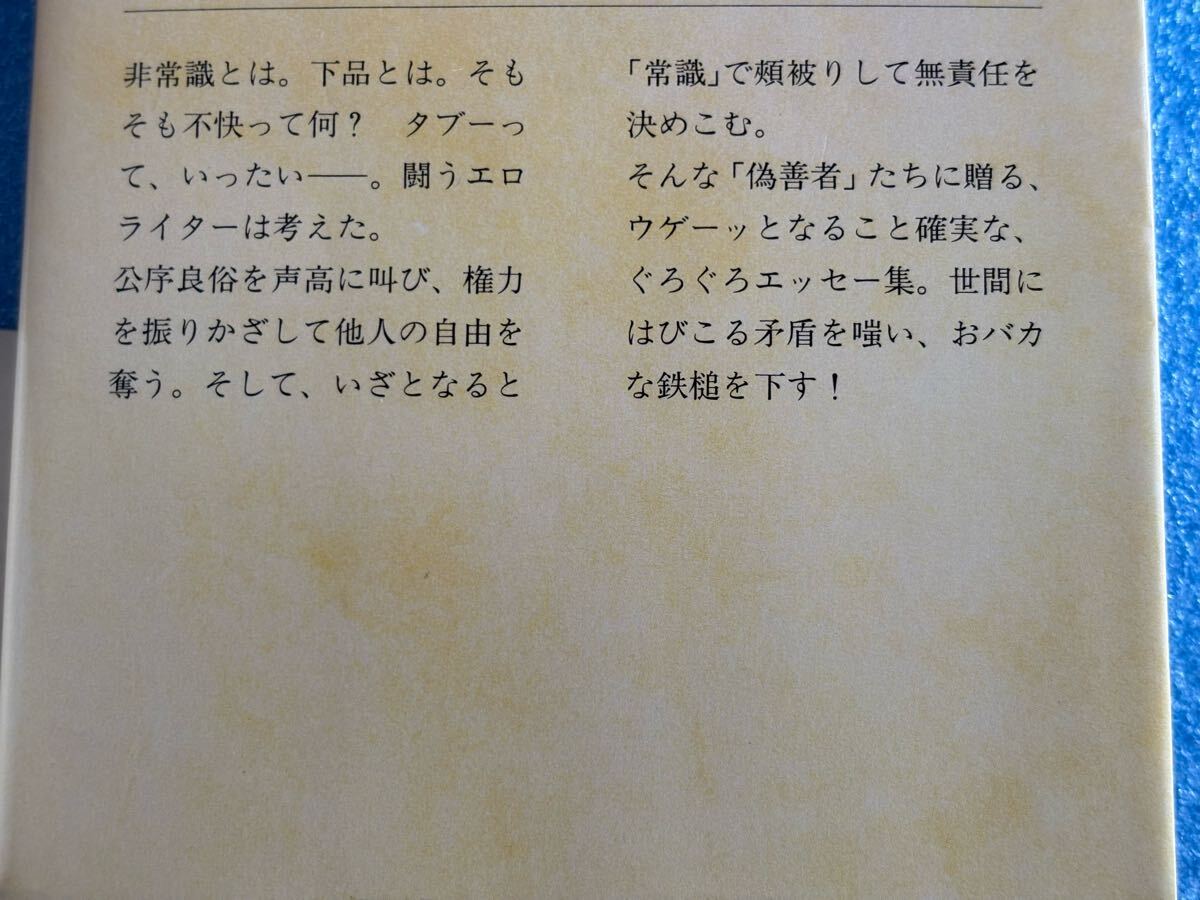 非常識とは。下品とは。そも
そも不快って何？　タブーっ
て、いったい――。闘うエロ
ライターは考えた。
公序良俗を声高に叫び、権力
を振りかざして他人の自由を
奪う。そして、いざとなると
「常識」で頰被りして無責任を
決めこむ。
そんな「偽善者」たちに贈る、
ウゲーッとなること確実な、
ぐろぐろエッセー集。世間に
はびこる矛盾を嗤い、おバカ
な鉄槌を下す！